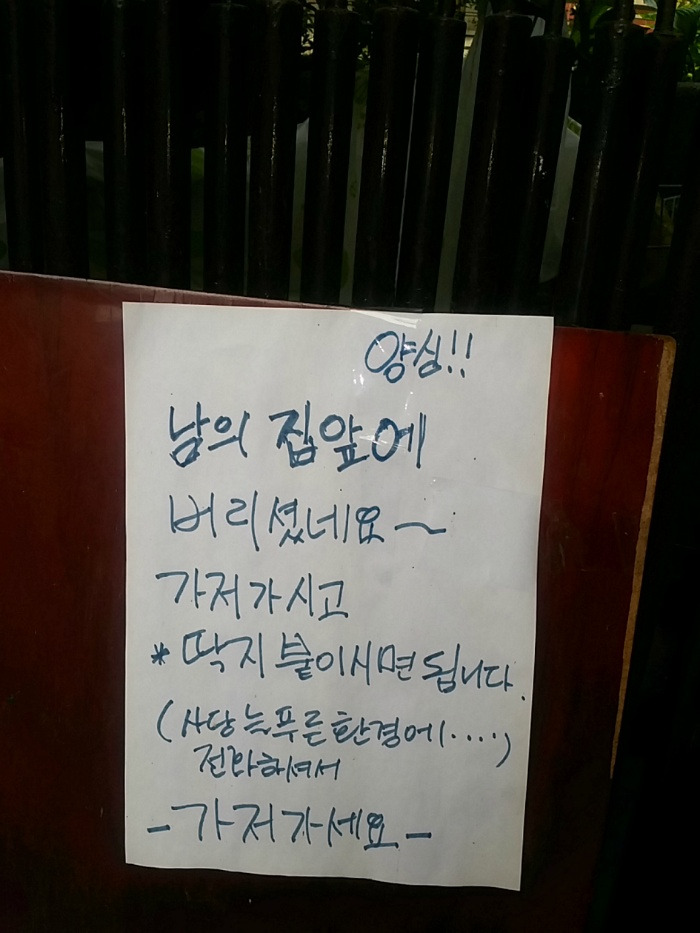 양심!!
남의 집앞에
버리셨네요~
가저가시고
* 딱지 붙이시면 됩니다.
(사당늘푸른환경에.....)
전화하셔서
- 가저가세요 -